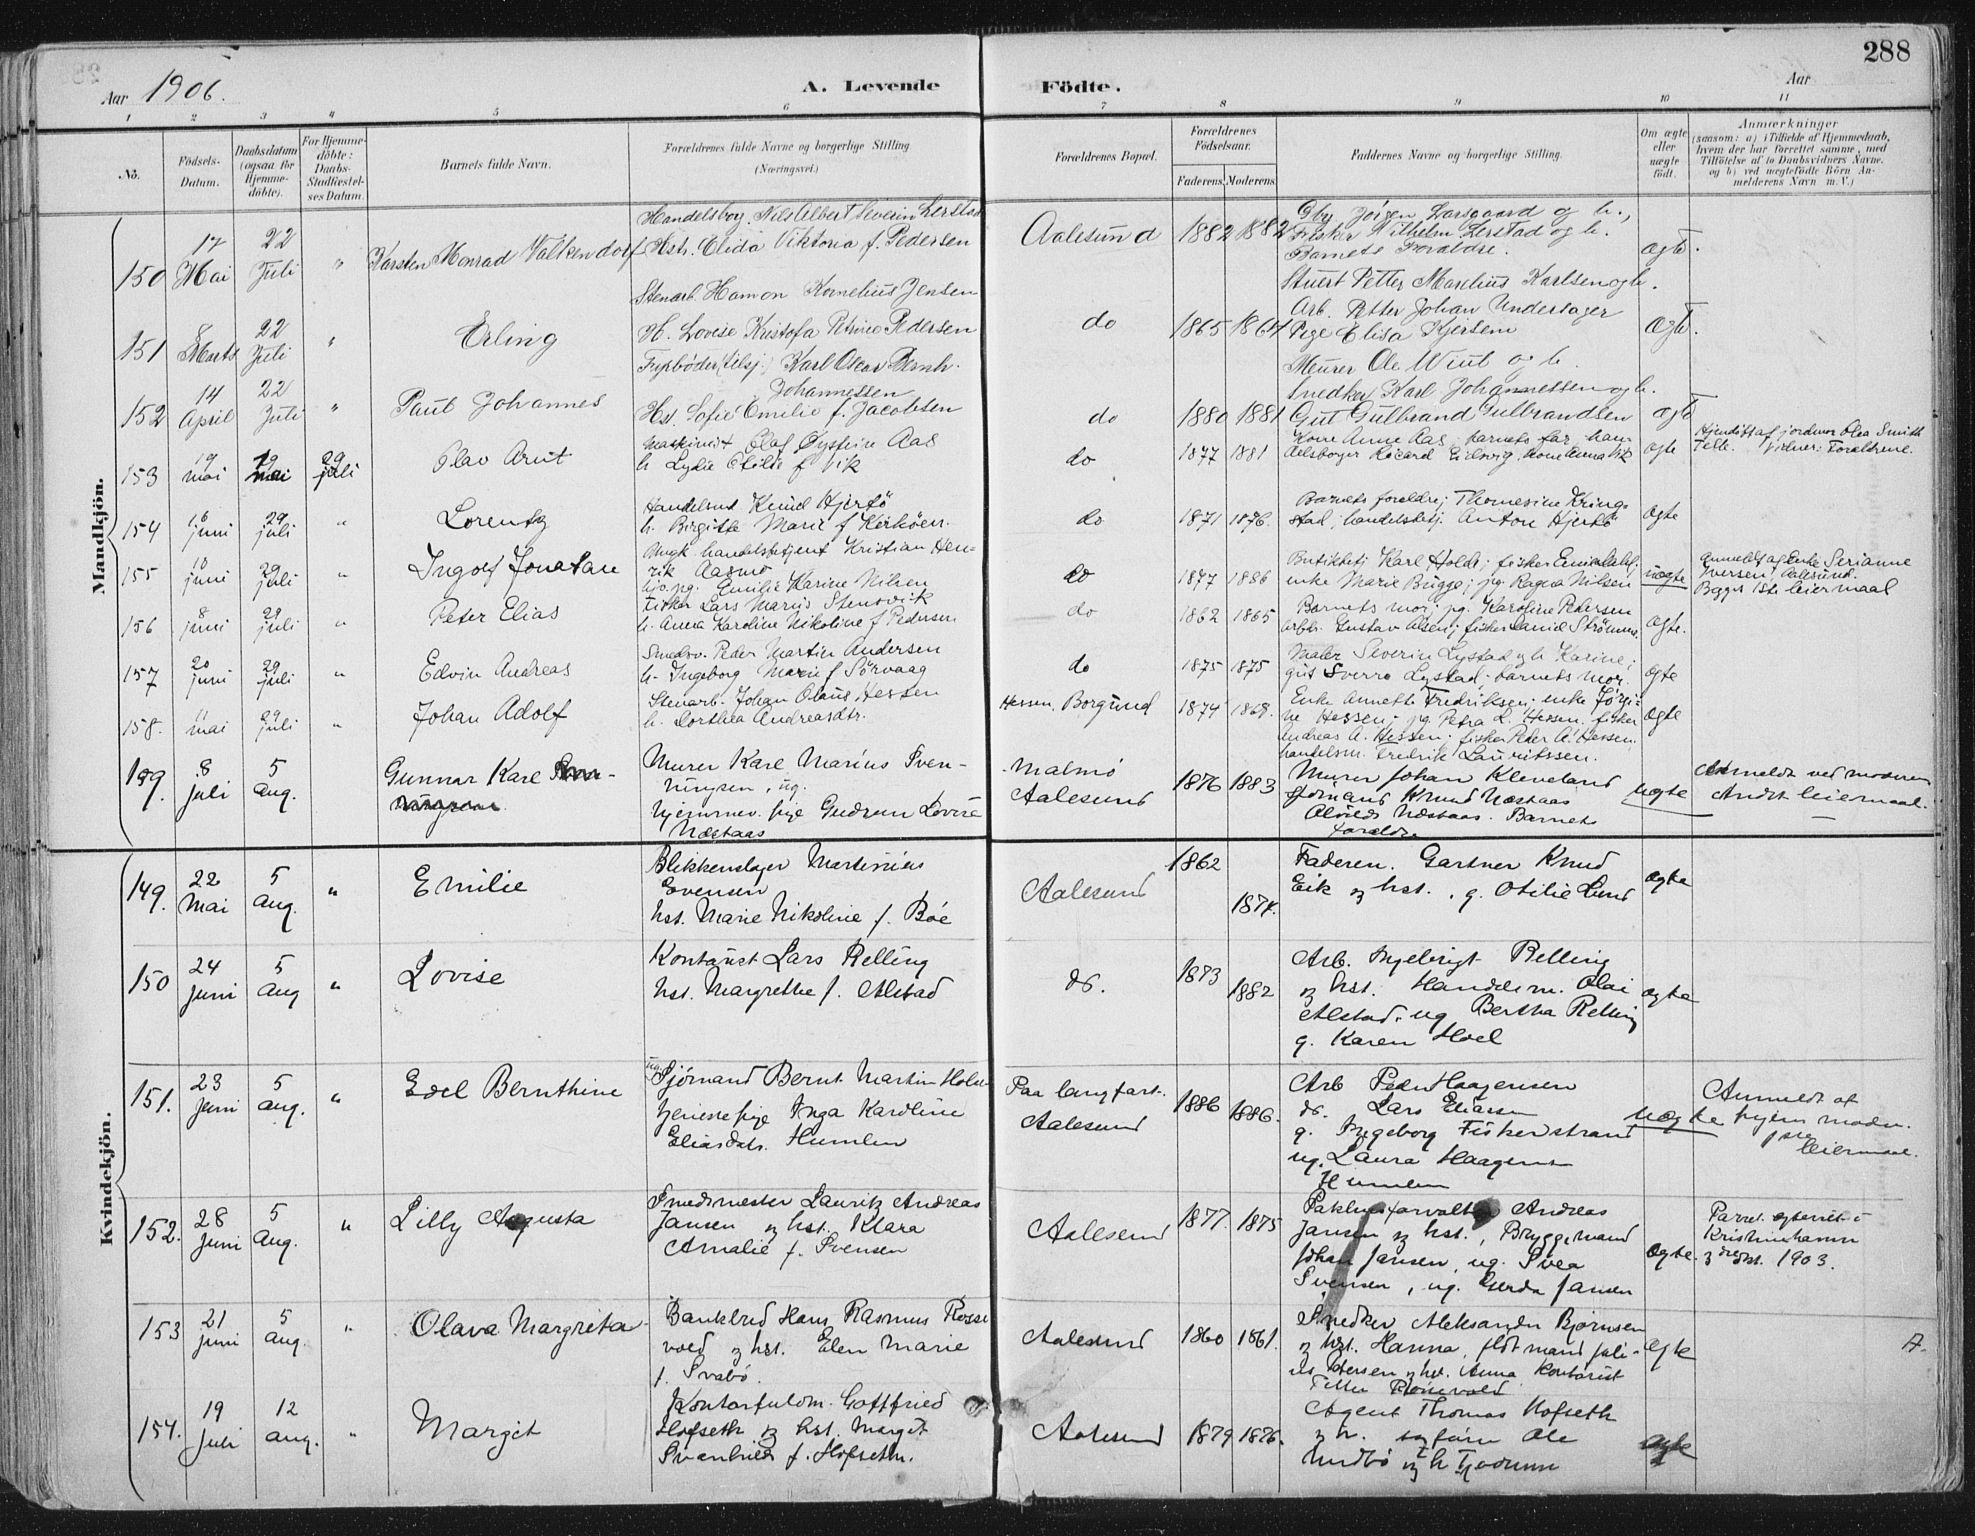 288
Aar 1906.
A. Levende
Födte.
Aar
1 2 3 4 5 6 7 8 9 10 11
No.
Födsels-Datum.
Daabsdatum (ogsaa for Hjemme-döbte).
For Hjemme-döbte: Daabs-Stadfæstel-ses Datum.
Barnets fulde Navn.
Forældrenes fulde Navne og borgerlige Stilling
(Næringsvei.)
Forældrenes Bopæl.
Forældrenes Födselsaar.
Faderens. Moderens.
Faddernes Navne og borgerlige Stilling.
Om ægte eller uægte födt.
Anmærkninger
(saasom: a) i Tilfælde af Hjemmedaab, hvem der har forrettet samme, med Tilföielse af to Daabsvidners Navne, og b) ved uægtefödte Börn Anmelderens Navn m. V.)
Mandkjön.
150 17 Mai 22 Juli " Karsten Monrad Valkendorf
Handelsbog. Nils Albert Severin Lerstad
Hstr. Elida Viktoria f. Pedersen
Aalesund 1882 1882
Gby Jörgen Larsgaard og h.,
Fisker Wilhelm Lerstad og h.
Barnets Forældre.
ægte.
151 Marts 22 Juli " Erling
Stenarb. Hamon Kornelius Jensen
H. Lovise Kristofa Petrine Pedersen
do 1865 1864
Stuert Petter Marelius Karlsen og h.
Arb. Petter Johan Undersager
Pige Elida Gjersem
ægte.
152 14 April 22 Juli " Paul Johannes
Fyrbøder (tilsj.) Karl Oscar Bernh. Johannessen
Hst. Sofie Emelie f. Jacobsen
do 1880 1881
Murer Ole Wiut og h.
Snedker Karl Johannessen og h.
Gut Gulbrand Gulbrandsen
ægte
153 19 mai 29 juli Olav Arnt
Maskinist Olaf Øystein Aas
h. Lydie Otilde f Vik
do 1877 1881
Kone Anne Aas, barnets far, han-
delsborger Ricard Eidsvig, kone Anna Vik
ægte
Hjemdöbt af jordmor Olea Smith
Forældrene.
154 16 juni 29 juli " Lorentz
Handelsmd Knud Hjertö
h. Birgitte Marie f Kirköen.
do 1871 1876.
Barnets forældre; Thomesine Krings-
stad; handelsbetj. Anton Hjertö
ægte
155 10 juni 29 juli " Ingolf Jonatan
Ungk. handelsbetjent Kristian Hen-
rik Aasmo
pg. Emilie Karine Nilsen
do 1877 1886
Butikbetj Karl Holde; fisker
enke Marie Brigge; pg Ragna Nilsen
uægte
Anmeldt af Enke Serianne
Iversen, Aalesund.
Begges 1ste leiermaal
156 8 juni 29 juli " Peter Elias
Fisker Lars Marius Stensvik
h. Anna Karoline Nikoline f Pedersen
do 1862 1865
Barnets mor; pg. Karoline Pedersen
arbdr. Gustav Olsen; fisker Daniel Strömmes.
ægte.
157 20 juni 29 juli " Edvin Andreas
Smedsv. Peder Martin Andersen
h. Ingeborg Marie f Sörvaag
do 1875 1875
Maler Severin Lystad og h Karine;
gut Sverre Lystad barnets mor.
ægte
158. 11 mai 29 juli " Johan Adolf
Stenarb. Johan Olaus Hessen
h. Dorthea Andreasdtr.
Hessen, Borgund 1874 1868.
Enke Annette Fredriksen, enke Jörgi-
ne Hessen; pg. Petra L. Hessen. fisker
Andreas A. Hessen; fisker Peder A. Hessen.
handelsm. Fredrik Lauritssen.
ægte
159. 8 juli 5 aug. Gunnar Karl
Murer Karl Marius Sven-
ningsen, ug.
hjemmev. pige Gudrun Lovise
Næstaas
Malmö
Aalesund 1876 1883
Murer Johan Kleveland
Sjömand Knud Næstaas
Alvilde Næstaas. Barnets
forældre
uægte
Anmeldt ved moderen
Andet leiermaal.
Kvindekjön.
149. 22 Mai 5 aug. " Emilie
Blikkenslager Martinius
Evensen
hst. Marie Nikoline f. Böe
Aalesund 1862 1874.
Faderen. Gartner Knud
Eik og hst., g. Otilie Lund
ægte
150 24 juni 5 aug " Lovise
Kontorist Lars Relling
hst. Margrethe f. Alstad
do. 1873 1882
Arb. Ingebrigt Relling
og hst. Handelsm. Olai
Alstad, ug Bertha Relling
g. Karen Hoel
ægte
151. 23 Juni 5 aug. " Edel Bernthine
Sjömand Bernt Martin Holm
tjenestepige Inga Karoline
Eliasdatr. Humlen
Paa langfart.
Aalesund 1886 1886.
Arb Peder Haagensen
do. Lars Eliassen
g. Ingeborg Fiskerstrand
ug. Laura Haagensen
Humlen
uægte
Anmeldt af
moder.
leiermaal.
152. 28 Juni 5 aug. " Lilly Augusta
Smedmester Lauritz Andreas
Jansen og hst. Klara
Amalie f. Svensen
Aalesund 1877. 1875
Pakhusforvalter Andreas
Jansen og hst., Bryggemand
Johan Jansen, ug. Svea
Svensen, ug. Gerda Jansen
Ægte.
Parret ægteviet i
Kristinehamn
1903.
153 21 juni 5 aug. " Olava Margreta
Bankbud Hans Rasmus Rosse-
vold og hst. Elen Marie
f. Svabö.
Aalesund 1860 1861.
Snedker Aleksander Björnsen
og hst. Hanna, flötmand Juli-
us Petersen og hst. Anna kontorist
Ægte
A.
154. 19 Juli 12 aug. " Margit
Kontorfuldm. Gottfried
Hofseth og hst. Margit
Svanhild f. Hofseth.
Aalesund 1879 1876.
Agent Thomas Hofseth
og h. sagförer Ole
og h
ægte